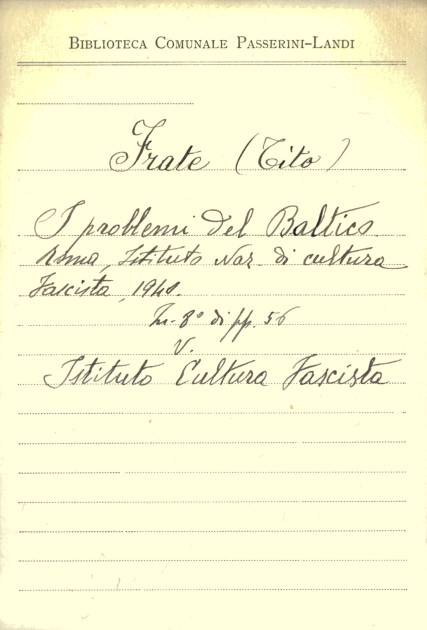 BIBLIOTECA COMUNALE PASSERINI-LANDI
Frate (Tito)
I problemi del Baltico
Roma, Istituto Naz. di cultura
Fascista, 1941.
In-8° di pp. 56
V.
Istituto Cultura Fascista